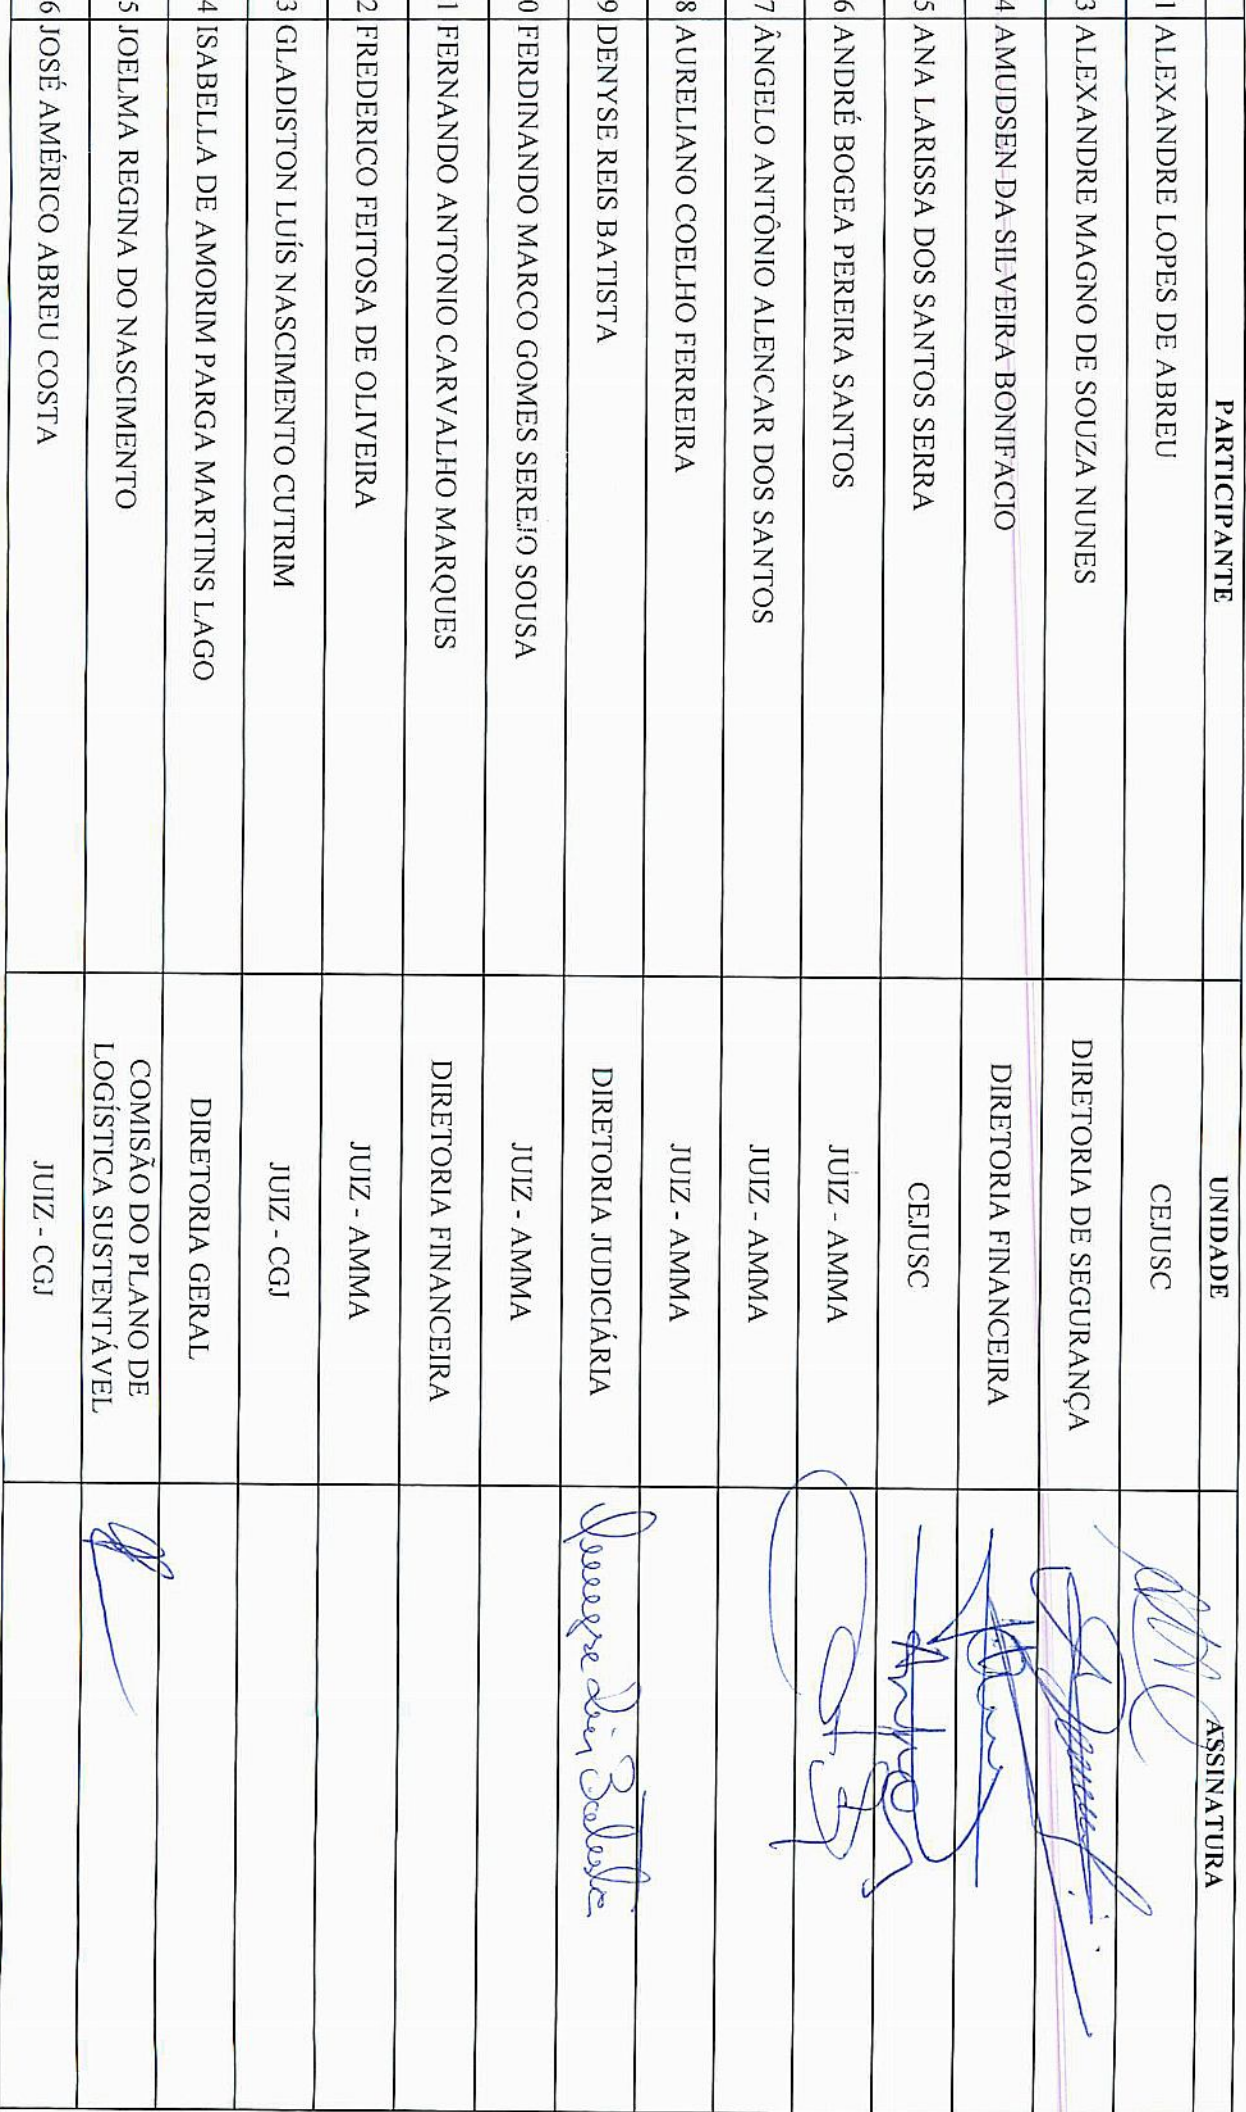 PARTICIPANTE UNIDADE ASSINATURA
1 ALEXANDRE LOPES DE ABREU CEJUSC
3 ALEXANDRE MAGNO DE SOUZA NUNES DIRETORIA DE SEGURANÇA
4 AMUDSEN DA SILVEIRA BONIFACIO DIRETORIA FINANCEIRA
5 ANA LARISSA DOS SANTOS SERRA CEJUSC
6 ANDRÉ BOGEA PEREIRA SANTOS JUIZ - AMMA
7 ÂNGELO ANTÔNIO ALENCAR DOS SANTOS JUIZ - AMMA
8 AURELIANO COELHO FERREIRA JUIZ - AMMA
9 DENYSE REIS BATISTA DIRETORIA JUDICIÁRIA
0 FERDINANDO MARCO GOMES SEREJO SOUSA JUIZ - AMMA
1 FERNANDO ANTONIO CARVALHO MARQUES DIRETORIA FINANCEIRA
2 FREDERICO FEITOSA DE OLIVEIRA JUIZ - AMMA
3 GLADISTON LUÍS NASCIMENTO CUTRIM JUIZ - CGJ
4 ISABELLA DE AMORIM PARGA MARTINS LAGO DIRETORIA GERAL
5 JOELMA REGINA DO NASCIMENTO COMISÃO DO PLANO DE
LOGÍSTICA SUSTENTÁVEL
6 JOSÉ AMÉRICO ABREU COSTA JUIZ - CGJ